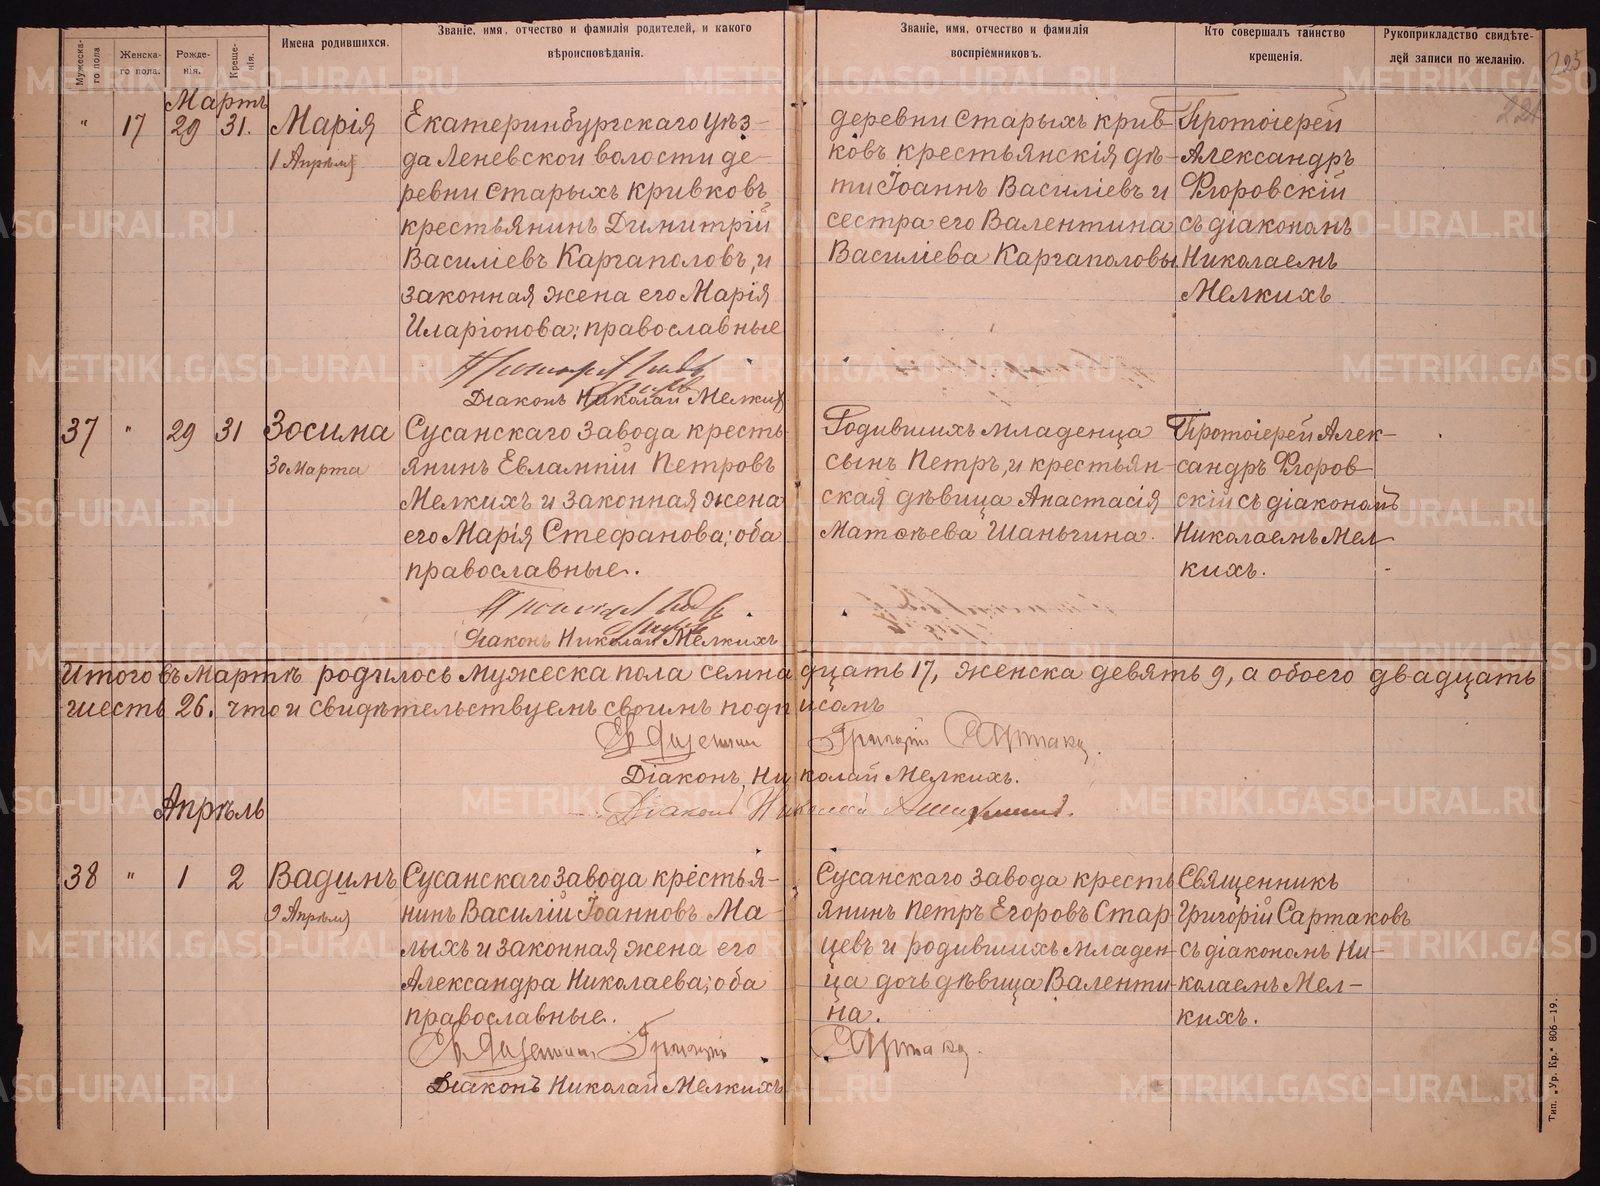 Мужеска-
го пола
Женска-
го пола.
Рожде-
нія.
Креще-
нія.
Имена родившихся.
Званіе, имя, отчество и фамилія родителей, и какого
вѣроисповѣданія.
Званіе, имя, отчество и фамилія
воспріемниковъ.
Кто совершалъ таинство
крещенія.
Рукоприкладство свидѣте-
лей записи по желанію.
225
Мартъ
" 17 29 31.
Марія
1 Апрѣля
Екатеринбургскаго уѣз-
да Леневской волости де-
ревни Старыхъ Кривковъ
крестьянинъ Димитрій
Василіевъ Каргаполовъ, и
законная жена его Марія
Иларіонова; православные
Діаконъ Николай Мелкихъ
деревни Старыхъ Крив-
ковъ крестьянскія дѣ-
ти Іоаннъ Василіевъ и
сестра его Валентина
Василіева Каргаполовы
Протоіерей
Александръ
Флоровскій
съ діакономъ
Николаемъ
Мелкихъ
37 " 29 31
Зосима
30 Марта
Сусанскаго завода кресть-
янинъ Евлампій Петровъ
Мелкихъ и законная жена
его Марія Стефанова; оба
православные.
Діаконъ Николай Мелкихъ
Родившихъ младенца
сынъ Петръ, и крестьян-
ская дѣвица Анастасія
Матѳѣева Шаньгина.
Протоіерей Алек-
сандръ Флоров-
скій съ діакономъ
Николаемъ Мел-
кихъ.
Итого въ Мартѣ родилось мужеска пола семнадцать 17, женска девять 9, а обоего двадцать
шесть 26. что и свидѣтельствуемъ своимъ подписомъ
Григорій Сартаков
Діаконъ, Николай Мелкихъ.
Діаконъ Николай
Апрѣль
38 " 1 2
Вадимъ
9 Апрѣля
Сусанскаго завода крестья-
нинъ Василій Іоанновъ Ма-
лыхъ и законная жена его
Александра Николаева; оба
православные.
Григорій
Сартаков
Діаконъ Николай Мелкихъ
Сусанскаго завода кресть
янинъ Петръ Егоровъ Стар-
цевъ и родившихъ младен-
ца дочь дѣвица Валенти-
на.
Священникъ
Григорій Сартаковъ
съ діакономъ Ни-
колаемъ Мел-
кихъ.
Тип. „Ур. Кр.“ 806—19.
METRIKI.GASO-URAL.RU